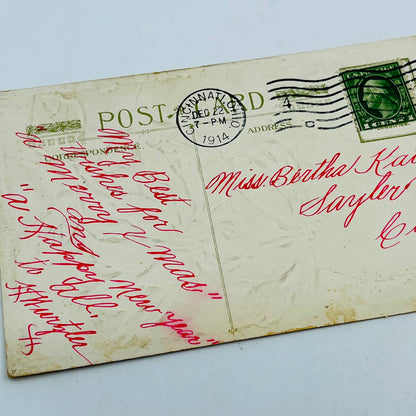 POST CARD
CINCINNATI, OHIO
DEC 22
7-PM
1914
4
C
U.S. POSTAGE
CORRESPONDENCE
ADDRESS
My Best
Wishes for
a Merry Xmas"
and
"a Happy New Year"
To
Miss. Bertha
Sayler